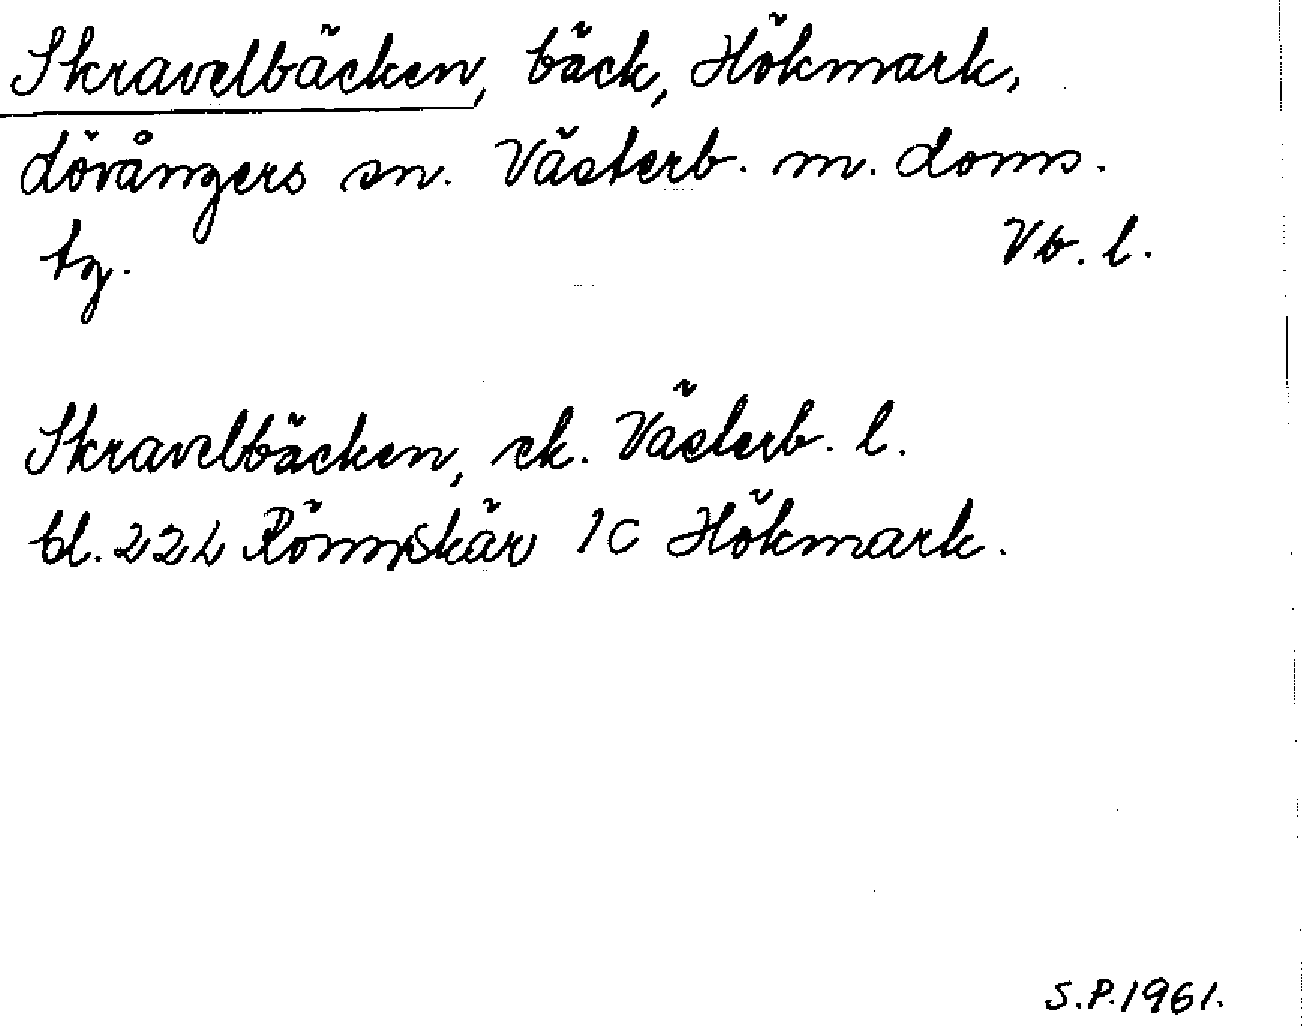 Skravelbäcken, bäck, Hökmark,
Lövångers sn. Västerb. m. doms.
tg. Vb. l.
Skravelbäcken, ek. Västerb. l.
bl. 22L Rönnskär 1c Hökmark.
S.P.1961.